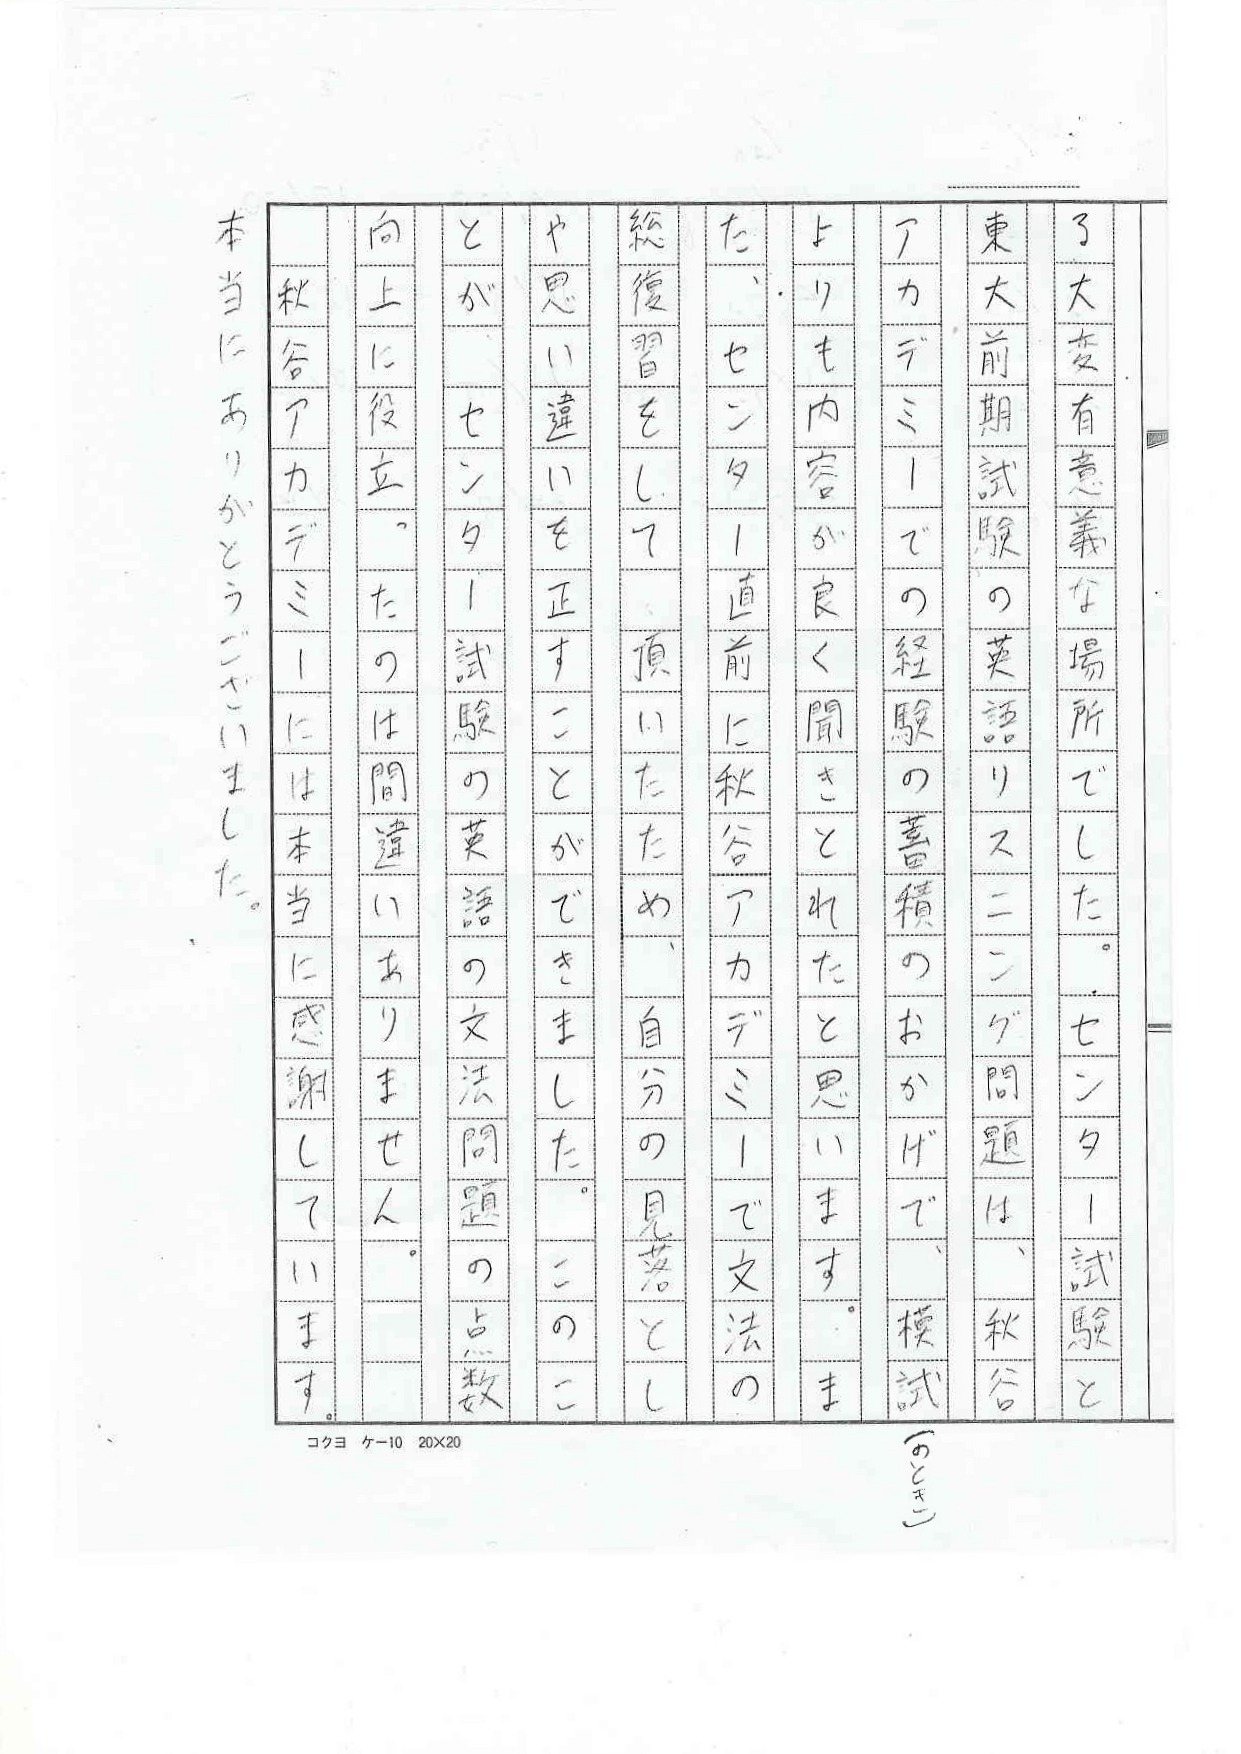 る大変有意義な場所でした。センター試験と
東大前期試験の英語リスニング問題は、秋谷
アカデミーでの経験の蓄積のおかげで、模試
(のとき)
よりも内容が良く聞きとれたと思います。ま
た、センター直前に秋谷アカデミーで文法の
総復習をして頂いたため、自分の見落とし
や思い違いを正すことができました。このこ
とが、センター試験の英語の文法問題の点数
向上に役立ったのは間違いありません。
秋谷アカデミーには本当に感謝しています。
本当にありがとうございました。
コクヨ ケー10 20×20